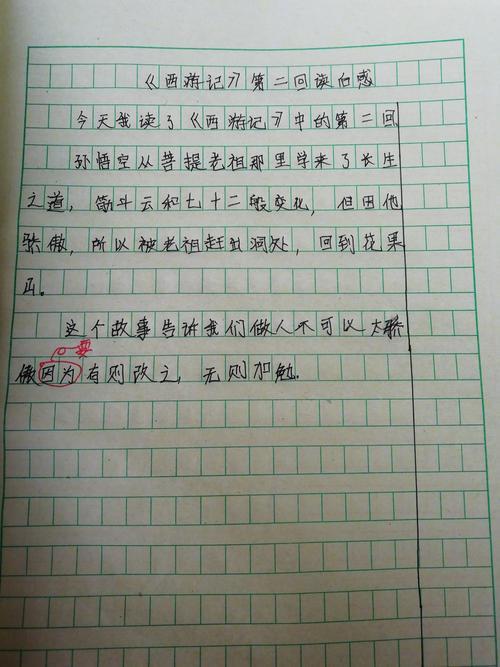 《西游记》第二回读后感
今天我读了《西游记》中的第二回
孙悟空从菩提老祖那里学来了长生
之道，筋斗云和七十二般变化，但因他
骄傲，所以被老祖赶出洞处，回到花果
山。
这个故事告诉我们做人不可以太骄
要
傲因为有则改之，无则加勉。